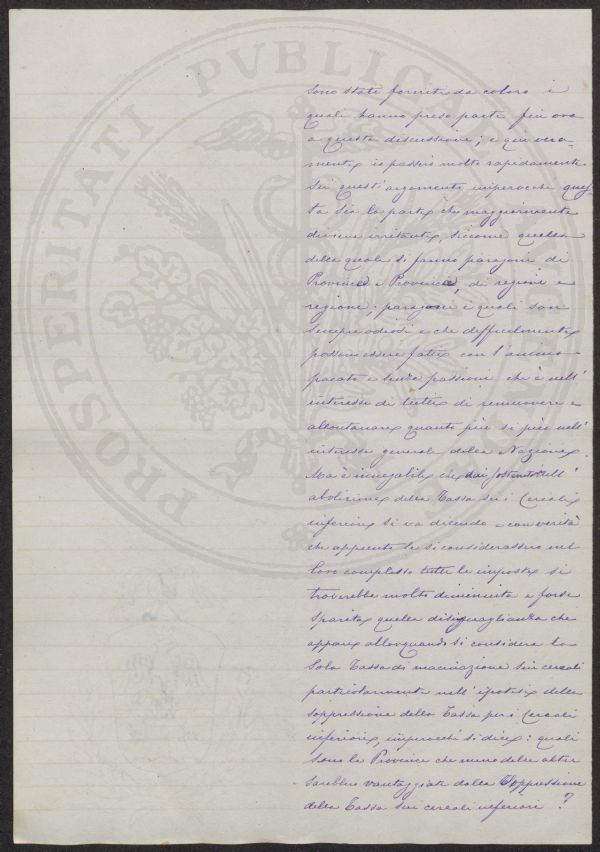 PROSPERITATI PVBLICAE
sono stati forniti da coloro i
quali hanno preso parte fin ora
a questa discussione; e qui vera-
mente io passerò molto rapidamente
su quest'argomento, imperocchè ques
ta sia la parte che maggiormente
diviene irritante, siccome quella
della quale si fanno paragoni di
Provincia e Provincia, di regione e
regione, paragoni i quali son
sempre odiosi e che difficilmente
possono essere fatti con l'animo
pacato e senza passioni che è nell'
interesse di tutti di rimuovere e
allontanare quanto più si può nell'
interesse generale della Nazione.
Ma è innegabile che dai sostenitori dell'
abolizione della Tassa su i Cereali
inferiori si va dicendo e con verità
che appunto se si considerassero nel
loro complesso tutte le imposte si
troverebbe molto diminuita e forse
sparita quella disuguaglianza che
appare allorquando si considera la
sola Tassa di macinazione sui cereali
particolarmente nell'ipotesi della
soppressione della Tassa per i Cereali
inferiori, imperocchè si dice: quali
sono le Provincie che meno delle altre
sarebbero vantaggiate dalla soppressione
della Tassa sui cereali inferiori?